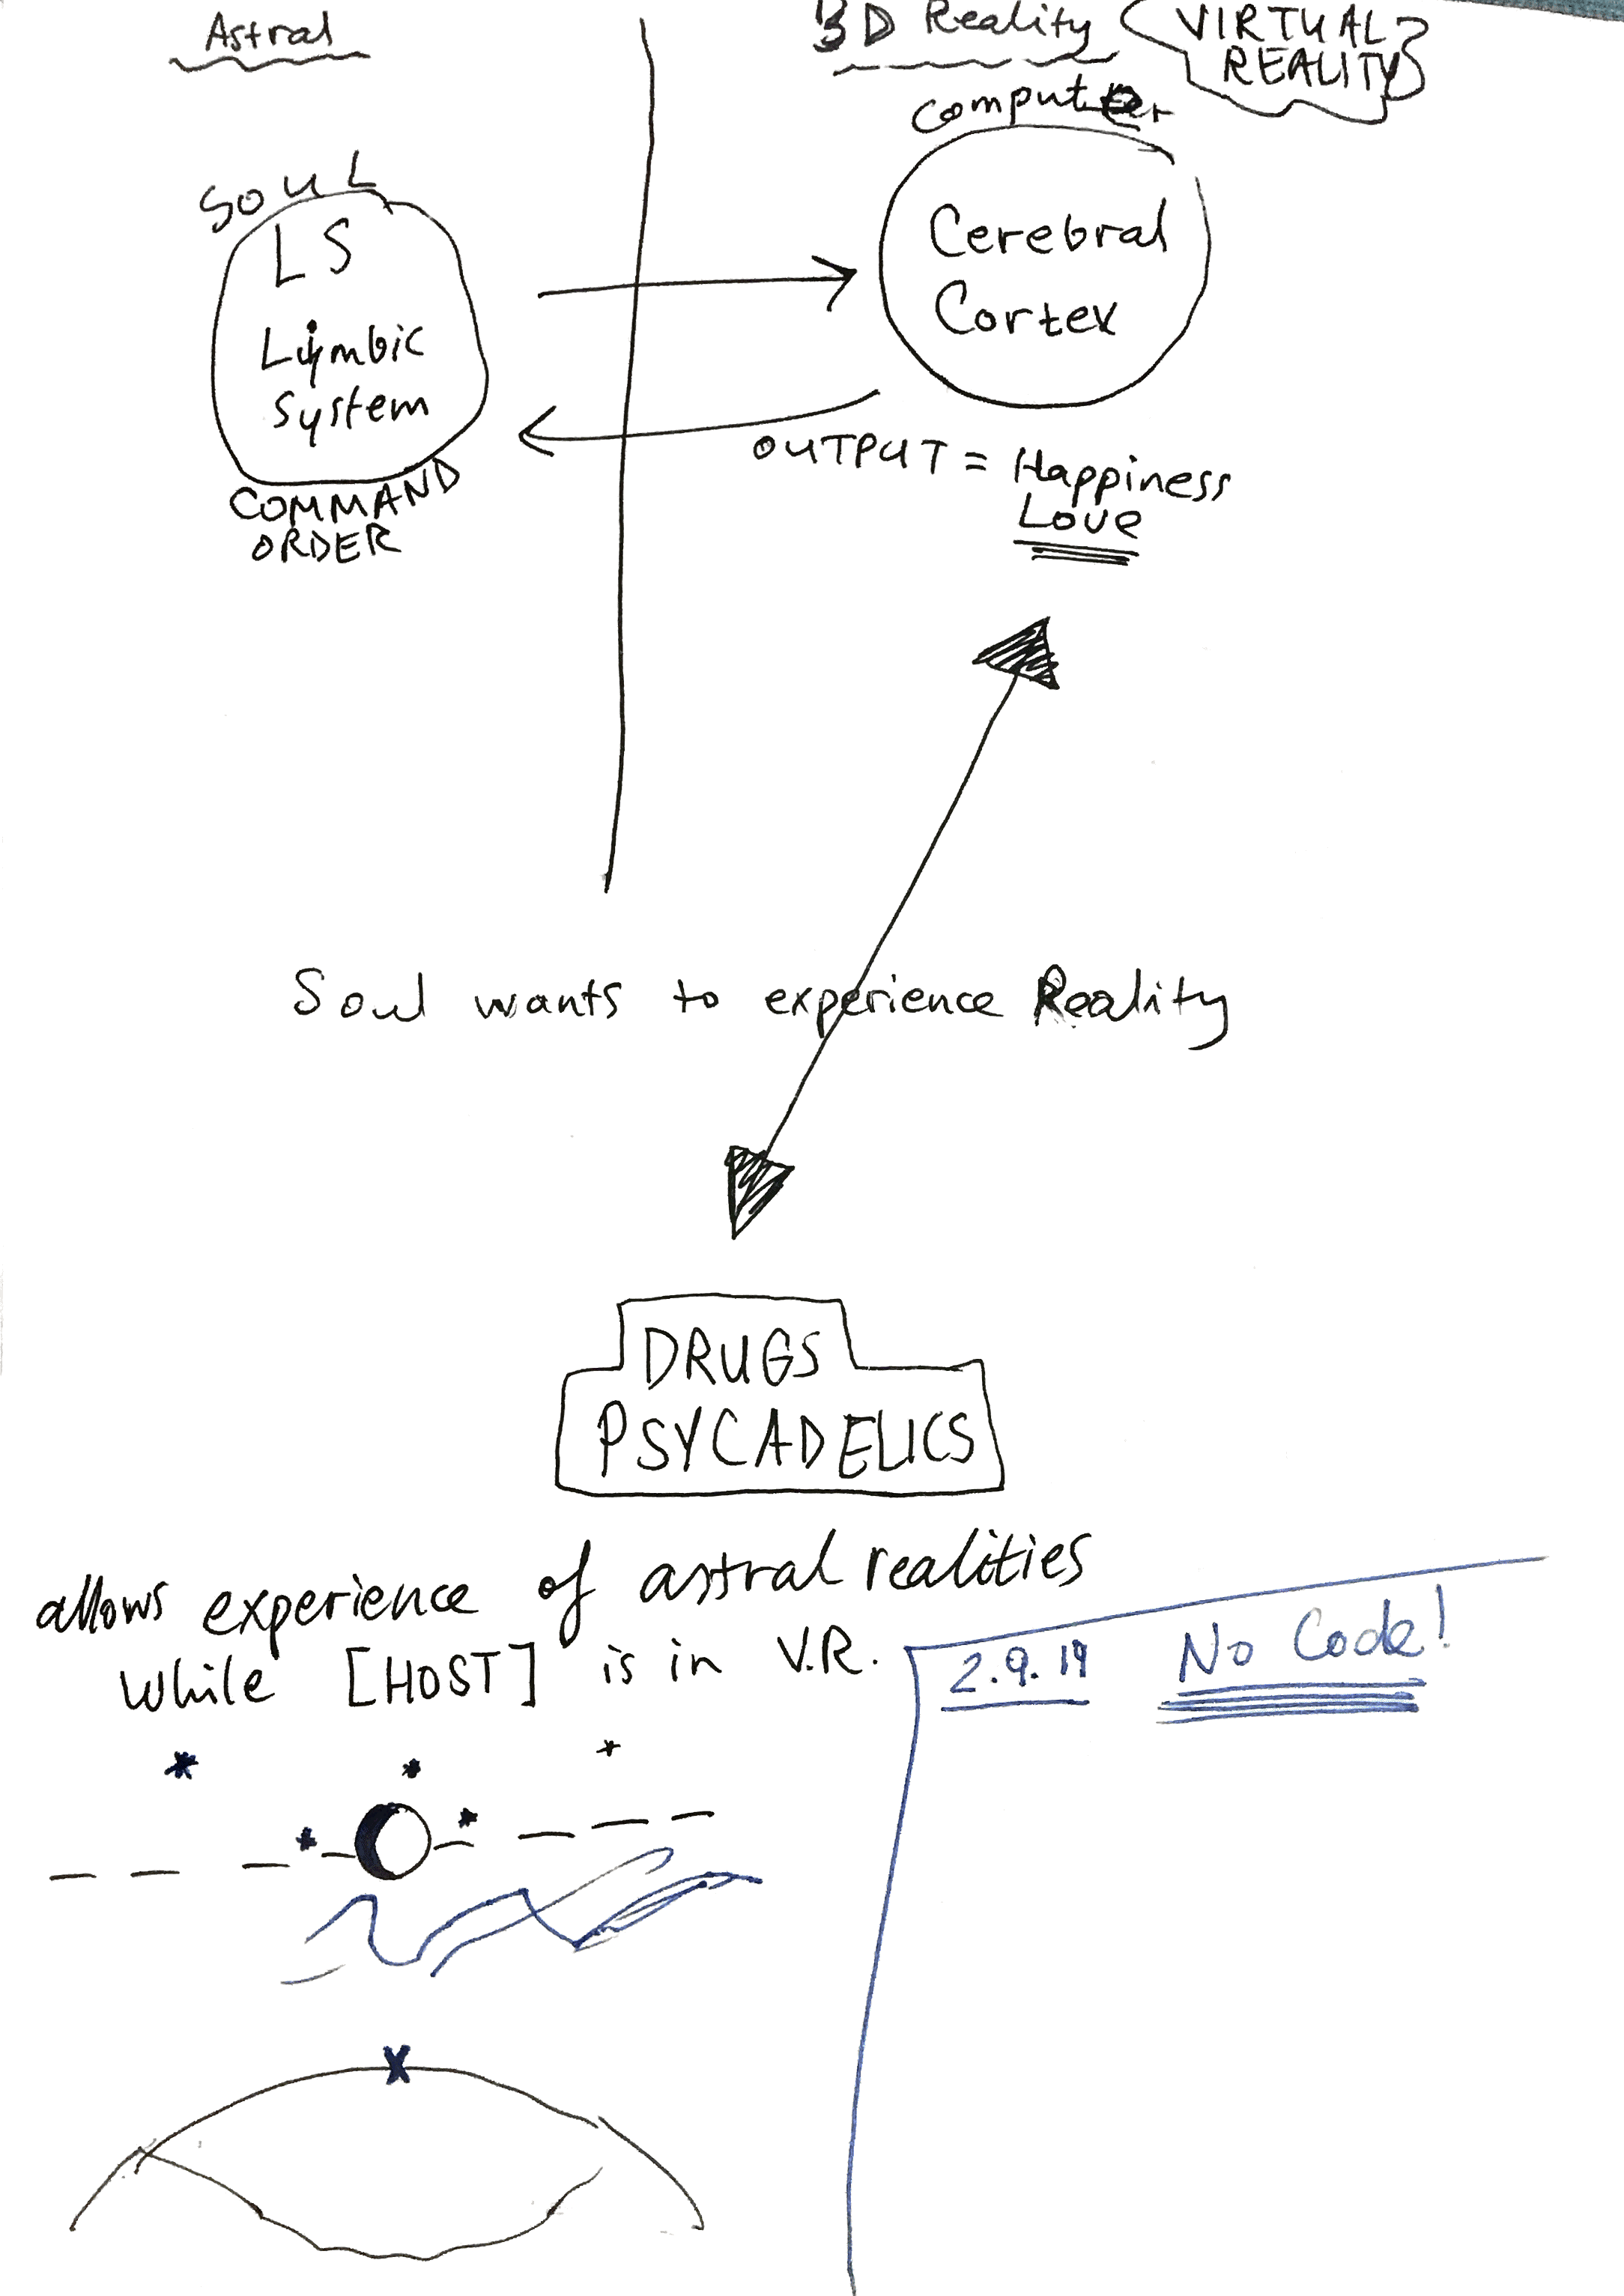 Astral
3D Reality
VIRTUAL
REALITY
Computer
SOUL
LS
Limbic
System
COMMAND
ORDER
Cerebral
Cortex
OUTPUT = Happiness
Love
Soul wants to experience Reality
DRUGS
PSYCADELICS
allows experience of astral realities
while [HOST] is in V.R.
2.9.19 No Code!
X